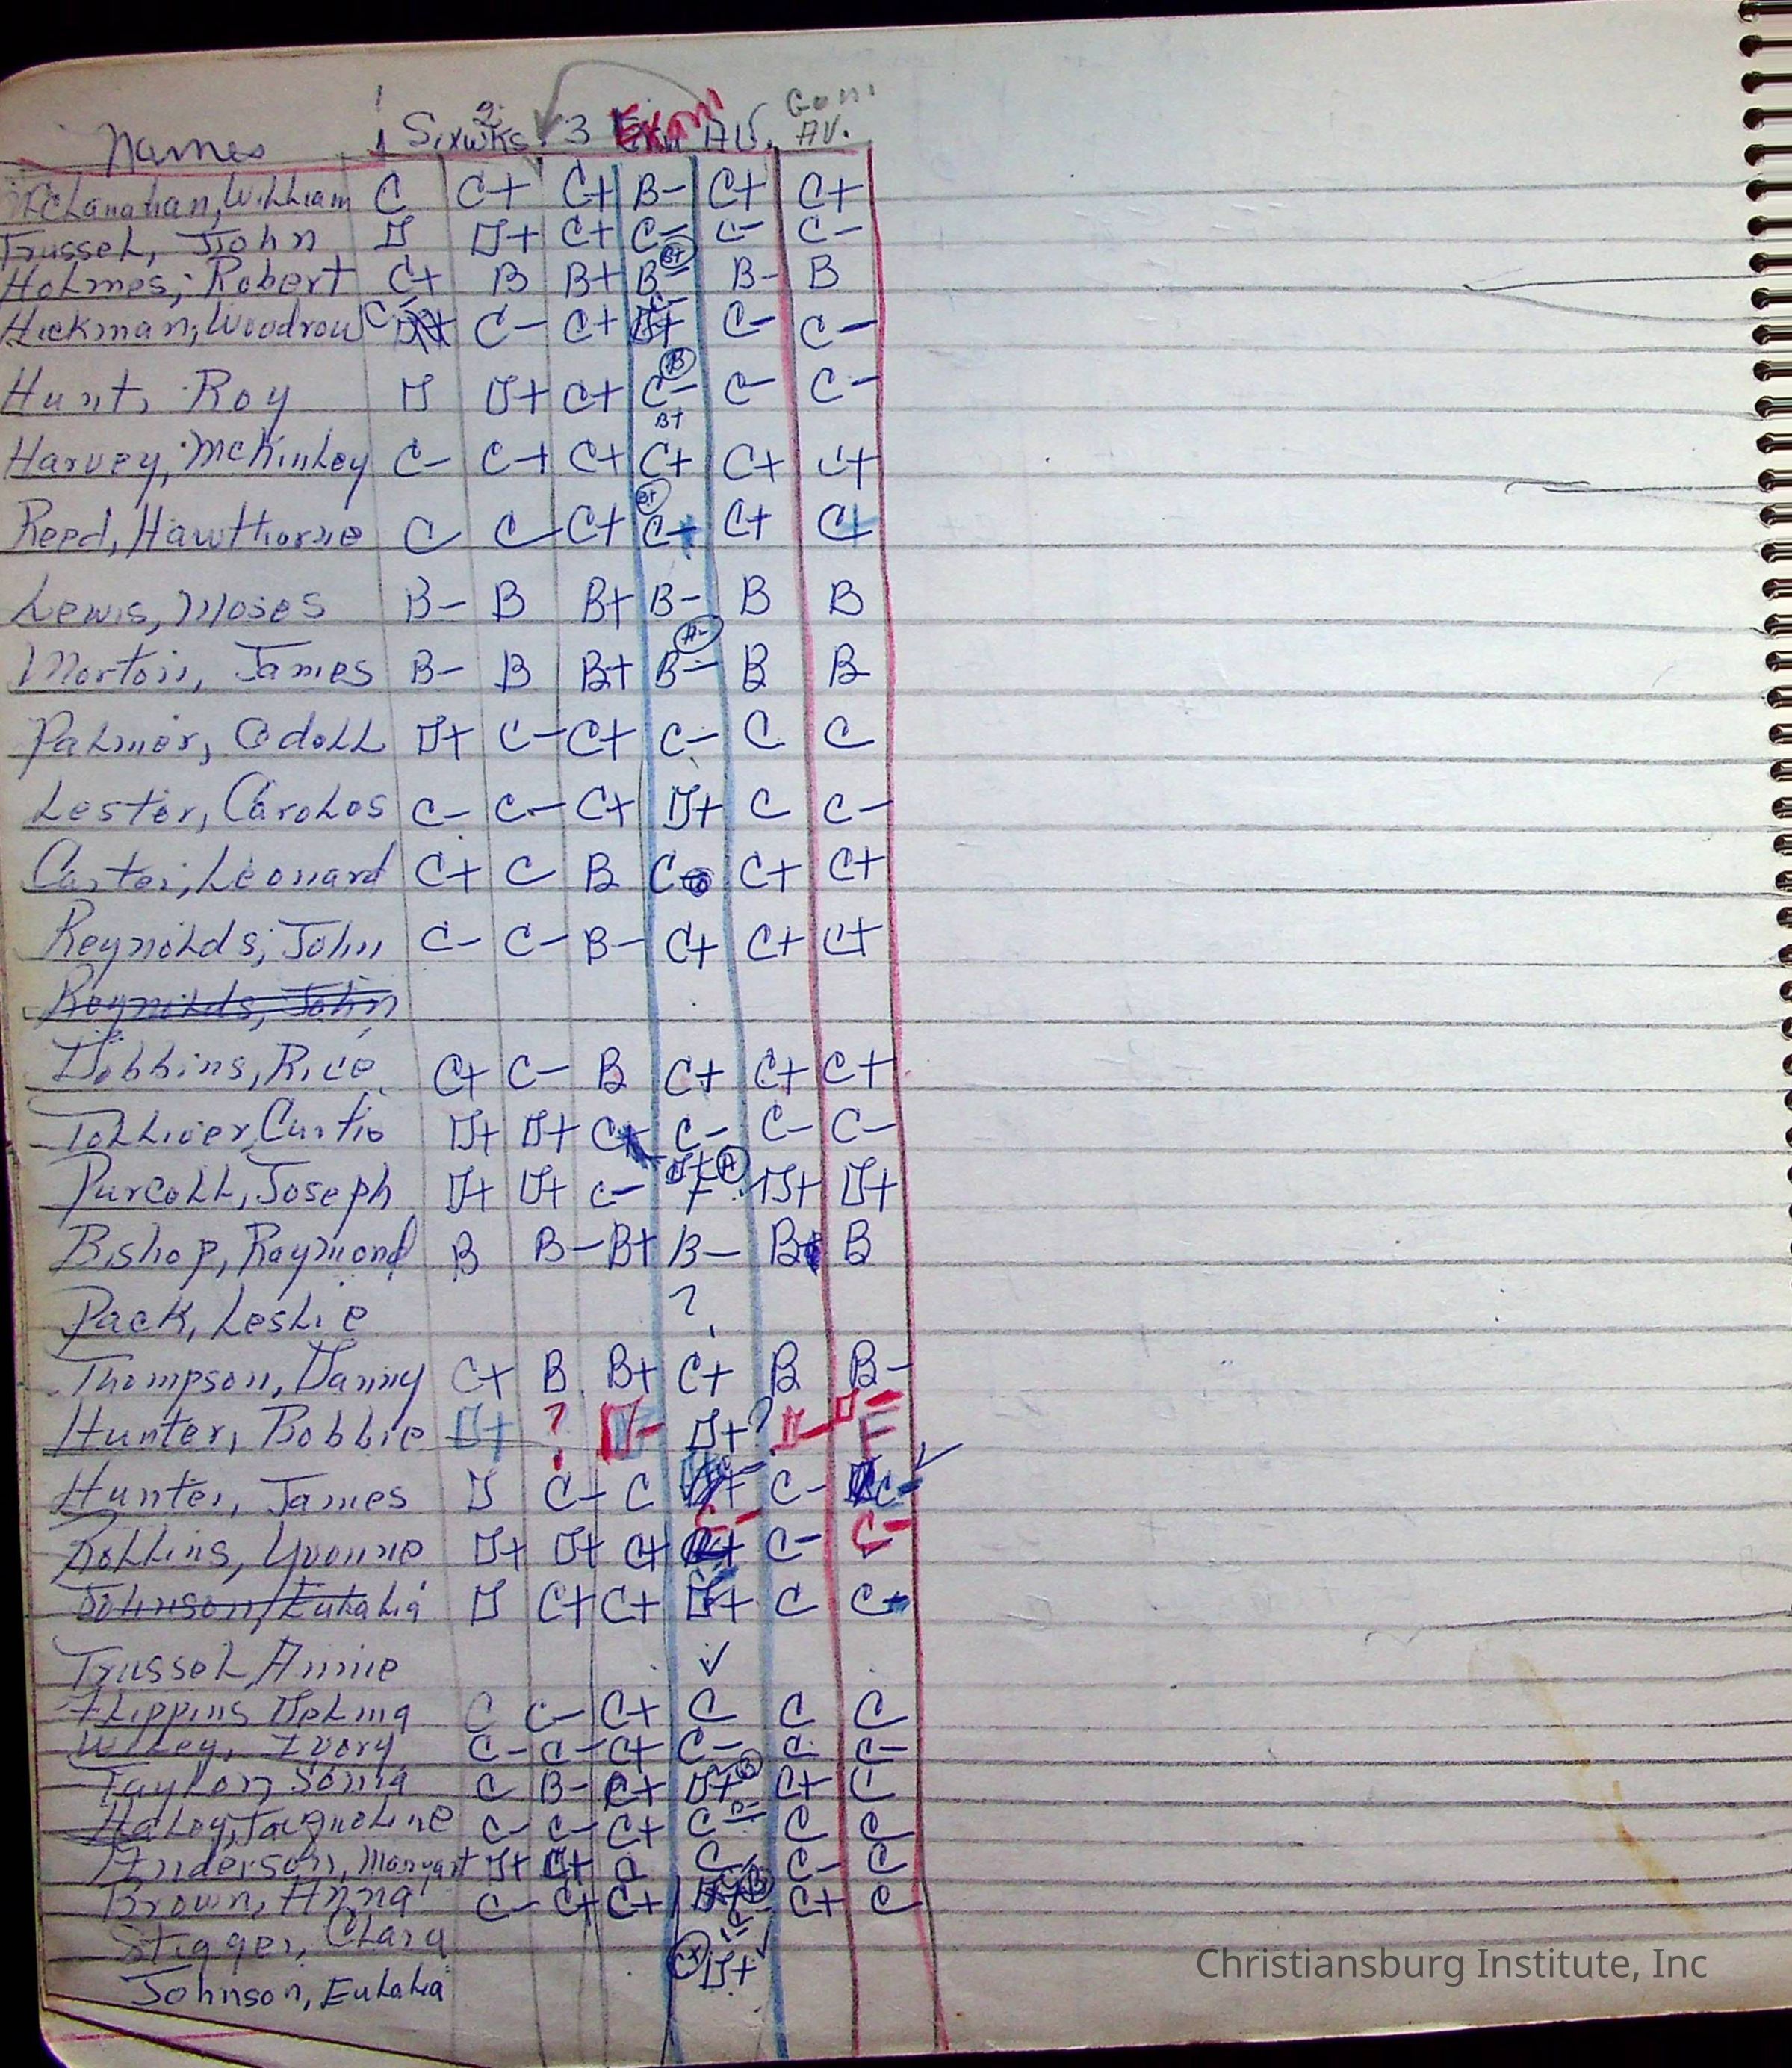 Names 1 Sixwks. 2 3 Exam AV. Gen. AV.
McClanahan, William C C+ C+ B- C+ C+
Trussel, John D D+ C+ C- C- C-
Holmes, Robert C+ B B+ B- B+ B- B
Hickman, Woodrow C- C- C+ D+ C- C- C-
Hunt, Roy D D+ C+ C- B C- C-
Harvey, McKinley C- C+ C+ B+ C+ C+ C+
Reed, Hawthorne C C C+ B+ C+ C+ C+
Lewis, Moses B- B B+ B- B B
Morton, James B- B B+ B- A- B B
Palmer, Odell D+ C- C+ C- C C
Lester, Carolos C- C- C+ D+ C C-
Carter, Leonard C+ C B C C+ C+
Reynolds, John C- C- B- C+ C+ C+
Reynolds, John
Dobbins, Rice C+ C- B C+ C+ C+
Tolliver, Curtis D+ D+ C- C- C- C-
Purcell, Joseph D+ D+ C- D+ A D+ D+
Bishop, Raymond B B- B+ B- B B
Pack, Leslie ?
Thompson, Danny C+ B B+ C+ B B-
Hunter, Bobbie D+ ? D- D+ ? D- D- F
Hunter, James D C+ C D+ C- C- C-
Rollins, Yvonne D+ D+ C+ C- C- C-
Johnson, Eulalia D C+ C+ D+ C C
Trussel, Annie ✓
Flippins Delma C C- C+ C C C
Wiley, Ivory C- C- C+ C- C C-
Taylor, Sonia C B- C+ D+ C+ C
Haley, Jacqueline C- C- C+ C- B- C C
Anderson, Margart D+ C+ C C C- C
Brown, Anna C- C+ C+ D+ B C+ C
Stigger, Clara
Johnson, Eulalia C+ D+ ✓
Christiansburg Institute, Inc